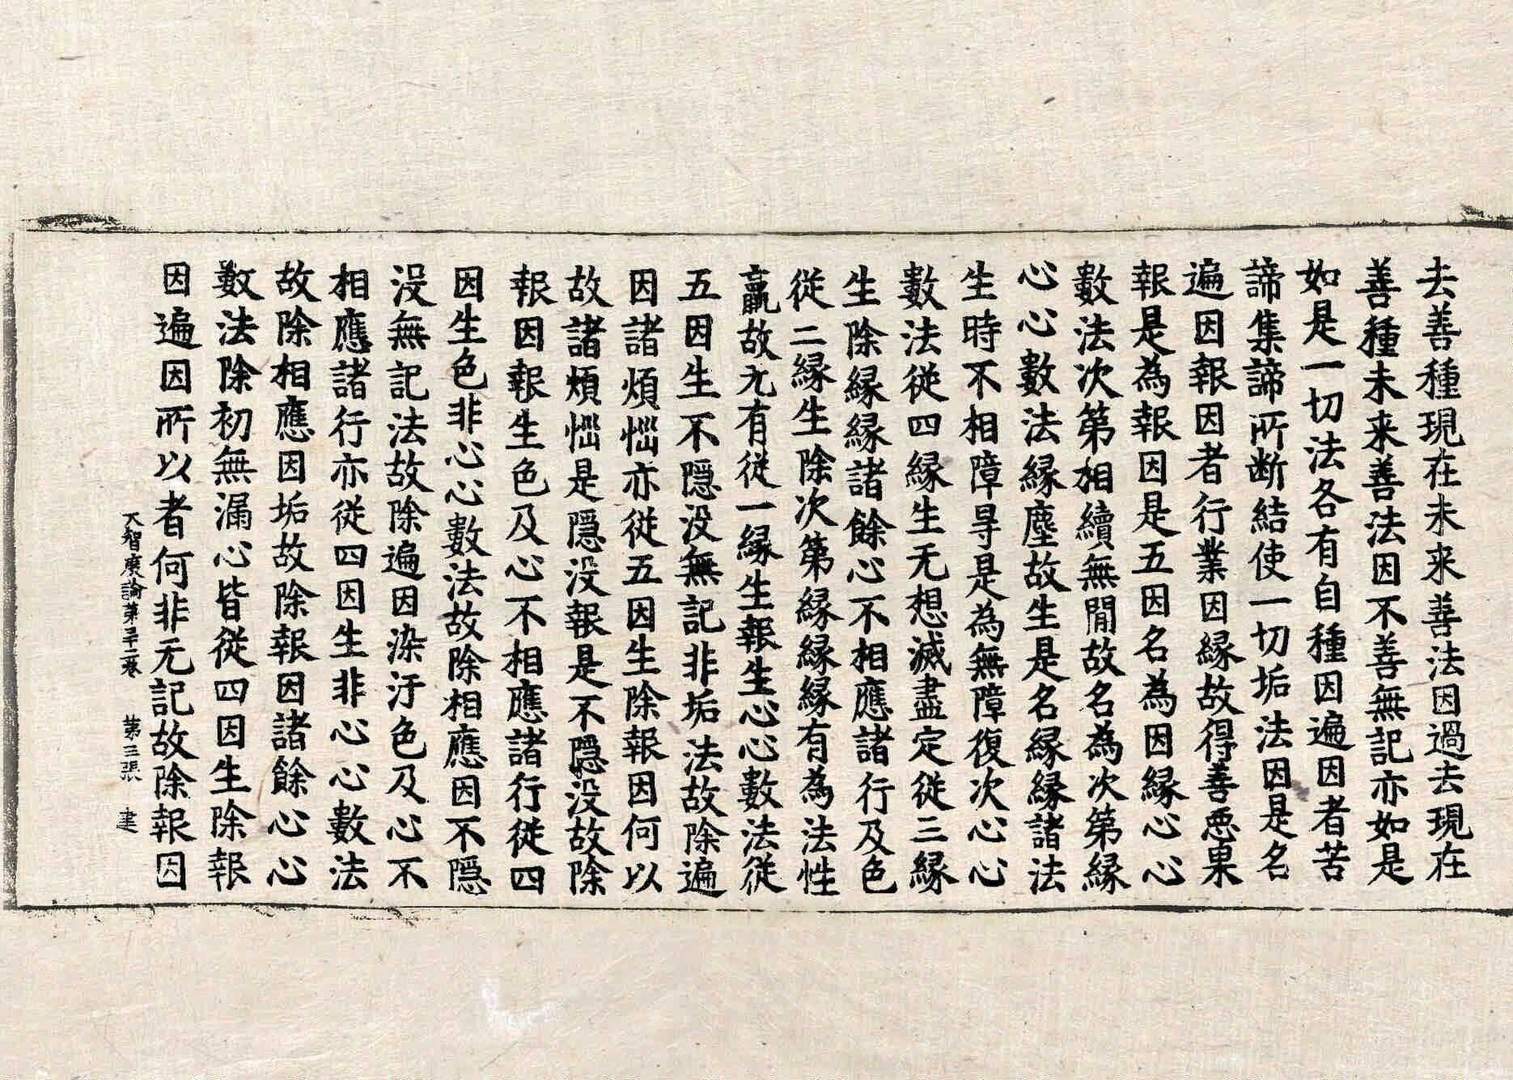 去善種現在未来善法因過去現在
善種未来善法因不善無記亦如是
如是一切法各有自種因遍因者苦
諦集諦所断結使一切垢法因是名
遍因報因者行業因縁故得善悪果
報是為報因是五因名為因縁心心
數法次第相續無間故名為次第縁
心心數法縁塵故生是名縁縁諸法
生時不相障㝵是為無障復次心心
數法従四縁生无想滅盡定従三縁
生除縁縁諸餘心不相應諸行及色
従二縁生除次第縁縁縁有為法性
羸故尢有従一縁生報生心心數法従
五因生不隠没無記非垢法故除遍
因諸煩惱亦従五因生除報因何以
故諸煩惱是隠没報是不隠没故除
報因報生色及心不相應諸行従四
因生色非心心數法故除相應因不隠
没無記法故除遍因染汙色及心不
相應諸行亦従四因生非心心數法
故除相應因垢故除報因諸餘心心
數法除初無漏心皆従四因生除報
因遍因所以者何非无記故除報因
大智度論第三十二卷 第三張 建